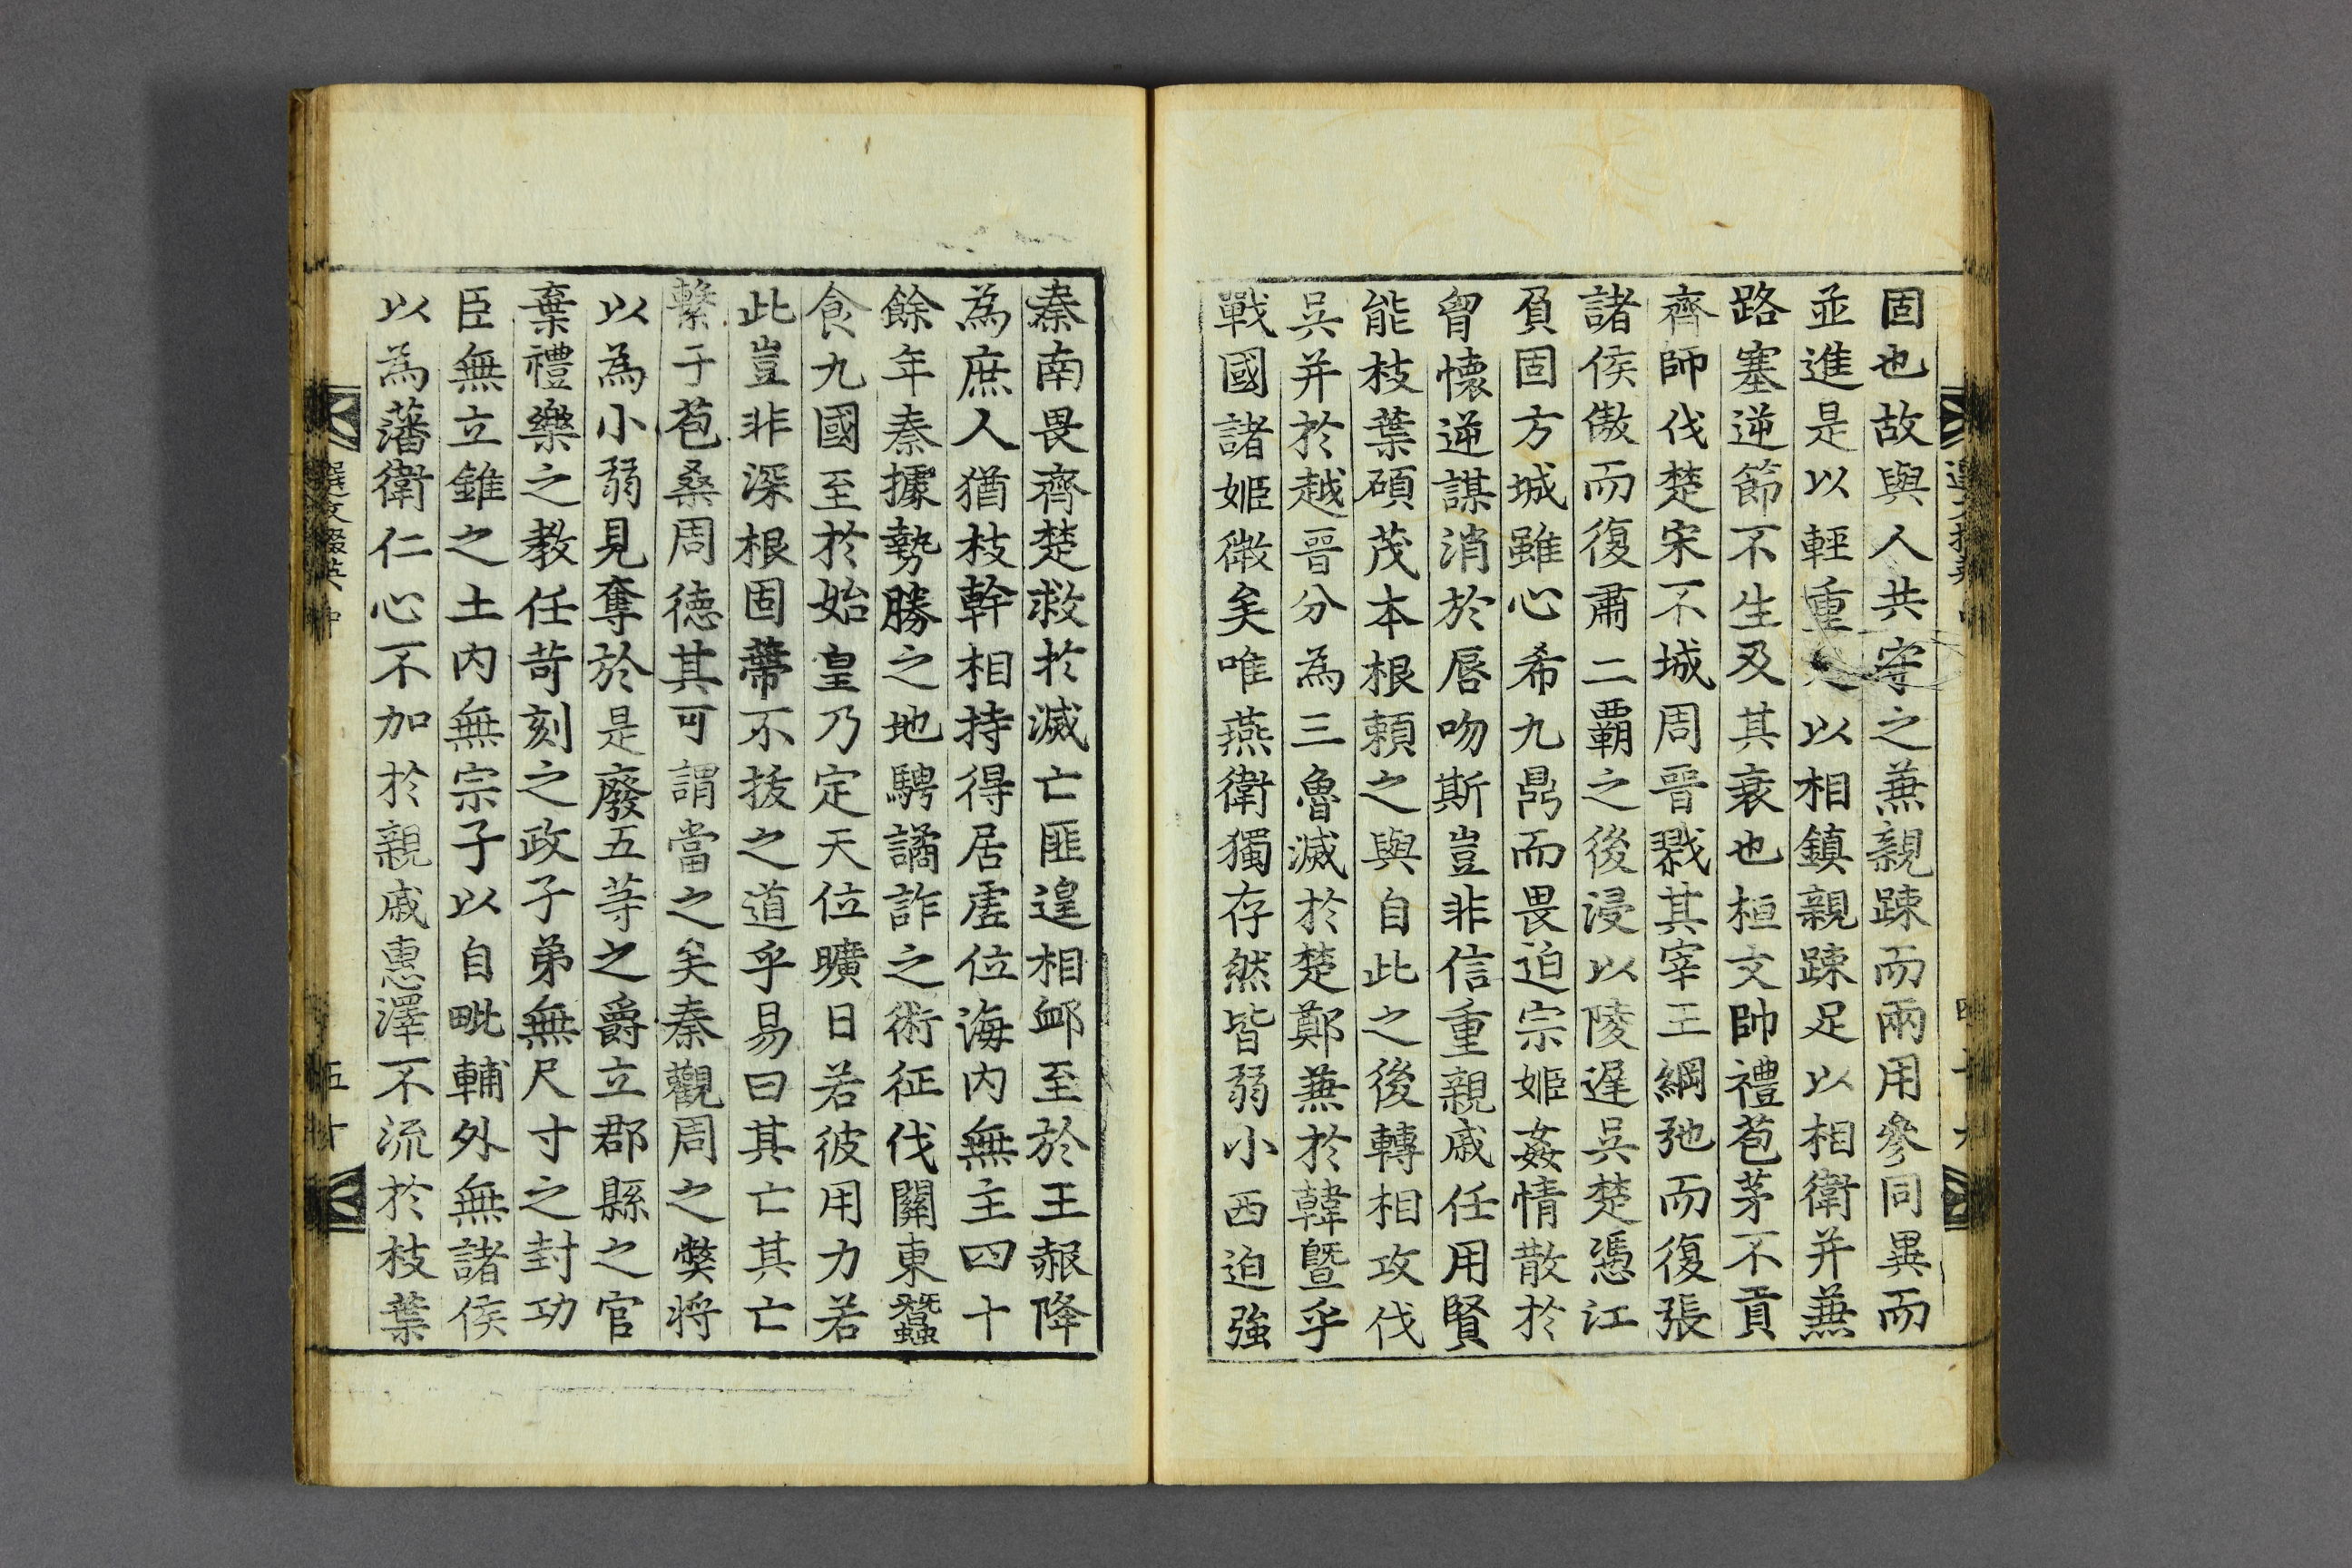 固也故與人共守之兼親踈而兩用參同異而
並進是以輕重足以相鎮親踈足以相衛并兼
路塞逆節不生及其衰也桓文帥禮苞茅不貢
齊師伐楚宋不城周晉戮其宰王綱弛而復張
諸侯傲而復肅二覇之後浸以陵遲吳楚憑江
負固方城雖心希九鼎而畏迫宗姬姦情散於
胷懷逆謀消於唇吻斯豈非信重親戚任用賢
能枝葉碩茂本根頼之與自此之後轉相攻伐
吳并於越晉分為三魯滅於楚鄭兼於韓曁乎
戰國諸姬微矣唯燕衛獨存然皆弱小西迫強
秦南畏齊楚救於滅亡匪遑相䘏至於王赧降
為庶人猶枝幹相持得居虛位海內無主四十
餘年秦據勢勝之地騁譎詐之術征伐關東蠶
食九國至於始皇乃定天位曠日若彼用力若
此豈非深根固蔕不拔之道乎易曰其亡其亡
繫于苞桑周德其可謂當之矣秦觀周之獘将
以為小弱見奪於是廢五等之爵立郡縣之官
棄禮樂之教任苛刻之政子弟無尺寸之封功
臣無立錐之土內無宗子以自毗輔外無諸侯
以為藩衛仁心不加於親戚惠澤不流於枝葉
選文掇英 中
五十